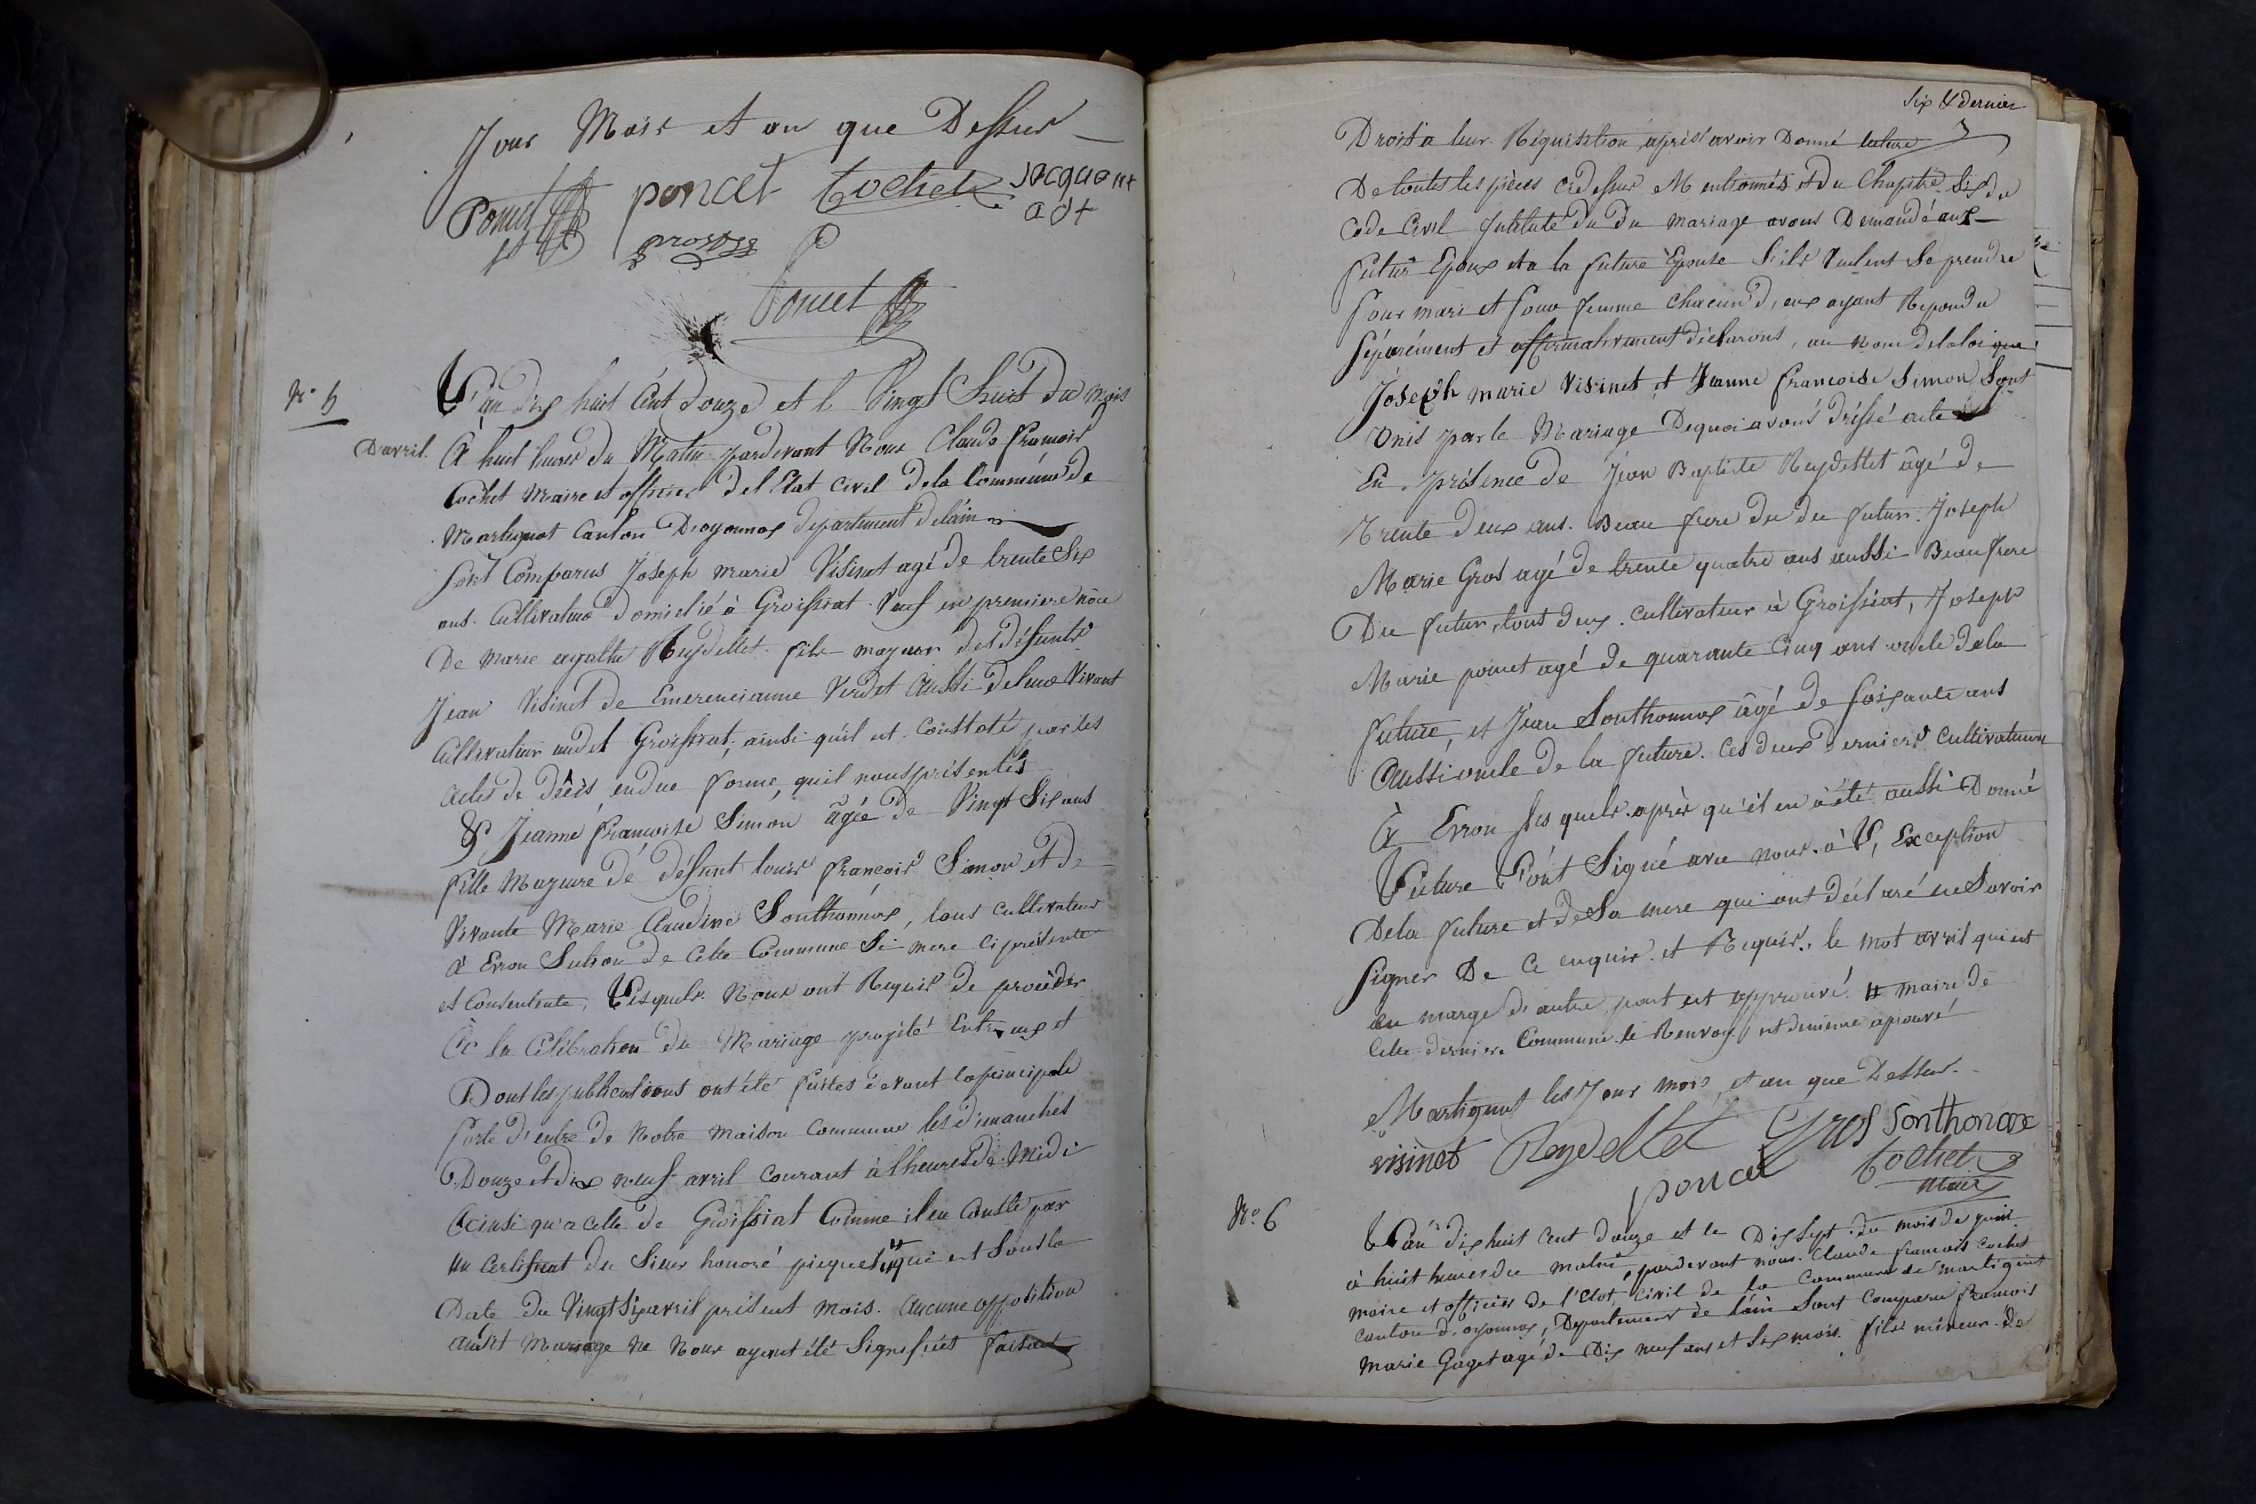 Jour Mois et an que Dessus
Poncet poncet Cochet jacquemet
adt
prost
Poncet
N° 5
L'an dix huit Cent douze et le Vingt huit du mois
D'avril
à huit heures du Matin pardevant Nous Claude François
Cochet Maire et officier de l'Etat Civil de la Commune de
Martignat Canton D'oyonnax departement de lain
Sont Comparus Joseph marie Visinet agé de trente Six
ans. Cultivateur domicilié à Groissiat Veuf en premiere nôce
De Marie agathe Reydellet fils mageur des défunts
Jean Visinet de Emerencianne Verdet aussi de Vivant
Cultivateur audit Groissiat; ainsi qu'il est Constaté par les
actes de décès, en due forme, quil nous présentés
& Jeanne françoise Simon âgée de Vingt Six ans
fille Mageure de défunt louis françois Simon et de
Vivante Marie Claudine Sonthonnax, tous cultivateurs
à Evron Section de Cette Commune Sa mere ci présente
et Consentente, Lesquels Nous ont Requis de procéder
à la Célébration du Mariage projeté Entre eux et
Dont les publications ont été faites devant la principale
porte d'entré de Notre Maison Commune les dimanches
Douze et dix neuf avril courant à l'heure de Midi
ainsi qu'a celle de Groissiat Comme il en Conste par
un Certificat du Sieur honoré piquet # qui est Sous la
Date du Vingt Six avril présent mois. Aucune opposition
audit Mariage ne Nous ayant été Signifiées faisant
Six & dernier
Droit a leur Réquisition, après avoir Donné lecture
De toutes les pièces cidessus Mentionnées et du Chapitre Six du
Code Civil Intitulé du du Mariage avons Demandé aux
futur Epoux et a la future Epouse S'ils Veulent Se prendre
pour mari et pour femme Chacun d'eux ayant Repondu
Séparément et affirmativement déclarons, au nom de la loi que
Joseph marie Visinet et Jeanne francoise Simon Sont
Unis par le Mariage Dequoi avons dréssé acte
En présence de Jean Baptiste Reydellet âgé de
Trente deux ans. Beau frere du du futur. Joseph
Marie Gros agé de trente quatre ans aussi Beau frere
Du futur, tout deux Cultivateur à Groissiat, Joseph
Marie poncet agé de quarante Cinq ans oncle de la
future, et Jean Sonthonnax âgé de soixante ans
Aussi oncle de la future. Ces deux derniers Cultivateurs
à Evron Lesquels après qu'il en a été aussi Donné
Lecture l'ont Signé avec nous à L'Exception
De la future et de Sa mere qui ont déclaré ne Savoir
Signer De Ce enquis et Requis. le mot avril qui est
en marge d'autre part est approuvé # maire de
Cette derniere Commune le Renvoy est de même aprouvé
Martignat les Jour mois et an que Dessus.
visinet Reydellet Gros Sonthonax
poncet Cochet
Maire
N° 6
L'an dix huit Cent douze et le Dix Sept du mois de juin
à huit heures du matin, pardevant nous. Claude francois Cochet
maire et officier de l'état Civil de la Commune de Martignat
Canton d'oyonnax, Département de l'ain Sont Comparu francois
Marie Goget agé de Dix neuf ans et Six mois. fils mineur de